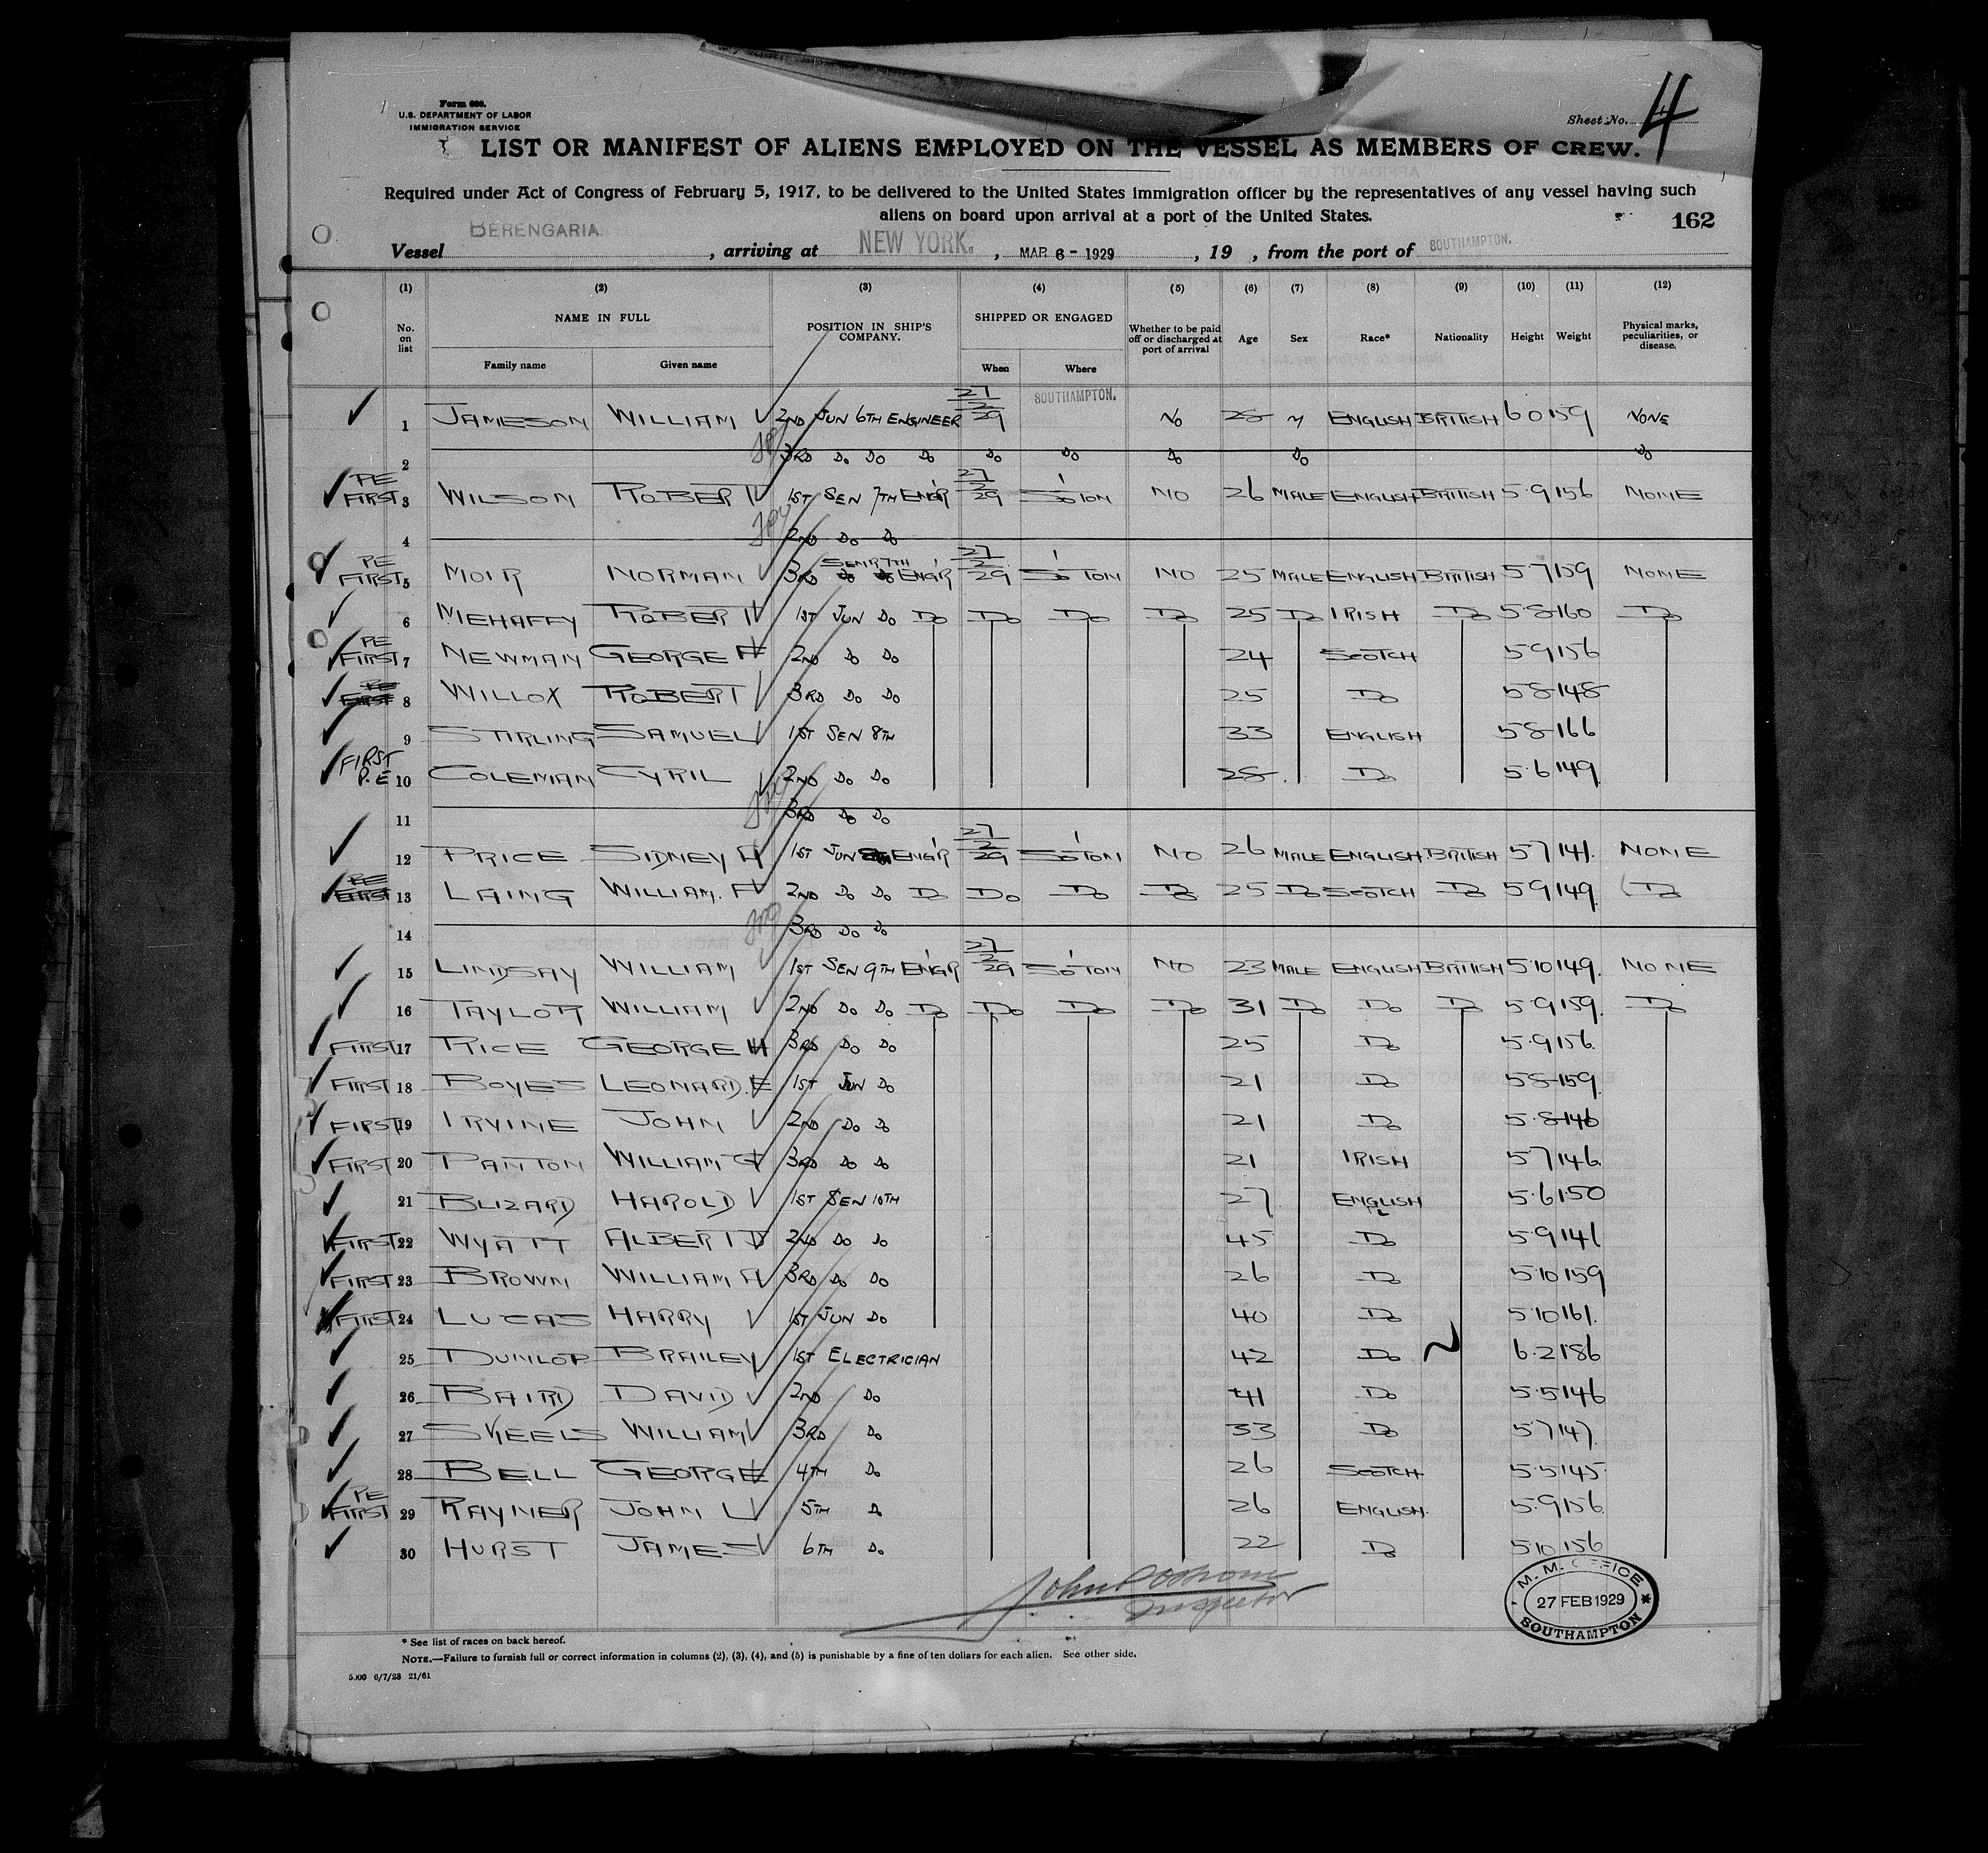 Form 680.
U.S. DEPARTMENT OF LABOR
IMMIGRATION SERVICE
Sheet No. 4
LIST OR MANIFEST OF ALIENS EMPLOYED ON THE VESSEL AS MEMBERS OF CREW.
Required under Act of Congress of February 5, 1917, to be delivered to the United States immigration officer by the representatives of any vessel having such
aliens on board upon arrival at a port of the United States.
162
Vessel BERENGARIA , arriving at NEW YORK. , MAR 6 - 1929 , 19 , from the port of SOUTHAMPTON.
(1) (2) (3) (4) (5) (6) (7) (8) (9) (10) (11) (12)
No. on list NAME IN FULL Family name Given name POSITION IN SHIP'S COMPANY. SHIPPED OR ENGAGED When Where Whether to be paid off or discharged at port of arrival Age Sex Race* Nationality Height Weight Physical marks, peculiarities, or disease.
1 JAMESON WILLIAM 2ND JUN 6TH ENGINEER 27/2/29 SOUTHAMPTON. NO 28 M ENGLISH BRITISH 6 0 159 NONE
2 3RD DO DO DO DO DO DO DO DO
PE FIRST 3 WILSON ROBERT 1ST SEN 7TH ENG'R 27/2/29 SO'TON NO 26 MALE ENGLISH BRITISH 5.9 156 NONE
4 2ND DO DO
PE FIRST 5 MOIR NORMAN 3RD SENR 7TH ENG'R 27/2/29 SO'TON NO 25 MALE ENGLISH BRITISH 5.7 159 NONE
6 MEHAFFY ROBERT 1ST JUN DO DO DO DO DO 25 DO IRISH DO 5.8 160 DO
PE FIRST 7 NEWMAN GEORGE F 2ND DO DO 24 SCOTCH 5.9 156
PE FIRST 8 WILLOX ROBERT 3RD DO DO 25 DO 5.8 148
9 STIRLING SAMUEL 1ST SEN 8TH 33 ENGLISH 5.8 166
FIRST P.E 10 COLEMAN CYRIL 2ND DO DO 28 DO 5.6 149
11 3RD DO DO
12 PRICE SIDNEY A 1ST JUN 8TH ENG'R 27/2/29 SO'TON NO 26 MALE ENGLISH BRITISH 5.7 141. NONE
PE FIRST 13 LAING WILLIAM. F 2ND DO DO DO DO DO DO 25 DO SCOTCH DO 5.9 149. DO
14 3RD DO DO
15 LINDSAY WILLIAM 1ST SEN 9TH ENG'R 27/2/29 SO'TON NO 23 MALE ENGLISH BRITISH 5.10 149. NONE
16 TAYLOR WILLIAM 2ND DO DO DO DO DO DO 31 DO DO DO 5.9 159. DO
FIRST 17 RICE GEORGE H 3RD DO DO 25 DO 5.9 156.
FIRST 18 BOYES LEONARD. E 1ST JUN DO 21 DO 5.8 159.
FIRST 19 IRVINE JOHN 2ND DO DO 21 DO 5.8 146
FIRST 20 PANTON WILLIAM G 3RD DO DO 21 IRISH 5.7 146.
21 BLIZARD HAROLD 1ST SEN 10TH 27 ENGLISH 5.6 150
FIRST 22 WYATT ALBERT D 2ND DO DO 45 DO 5.9 141
FIRST 23 BROWN WILLIAM A 3RD DO DO 26 DO 5.10 159
FIRST 24 LUCAS HARRY 1ST JUN DO 40 DO 5.10 161.
25 DUNLOP BRAILEY 1ST ELECTRICIAN 42 DO 6.2 186
26 BAIRD DAVID 2ND DO 41 DO 5.5 146
27 SKEELS WILLIAM 3RD DO 33 DO 5.7 147.
28 BELL GEORGE 4TH DO 26 SCOTCH 5.5 145.
PE FIRST 29 RAYNER JOHN L 5TH DO 26 ENGLISH. 5.9 156
30 HURST JAMES 6TH DO 22 DO 5.10 156
Inspector
M. M. OFFICE
27 FEB 1929
SOUTHAMPTON
* See list of races on back hereof.
NOTE.—Failure to furnish full or correct information in columns (2), (3), (4), and (5) is punishable by a fine of ten dollars for each alien. See other side.
5,000 6/7/28 21/61